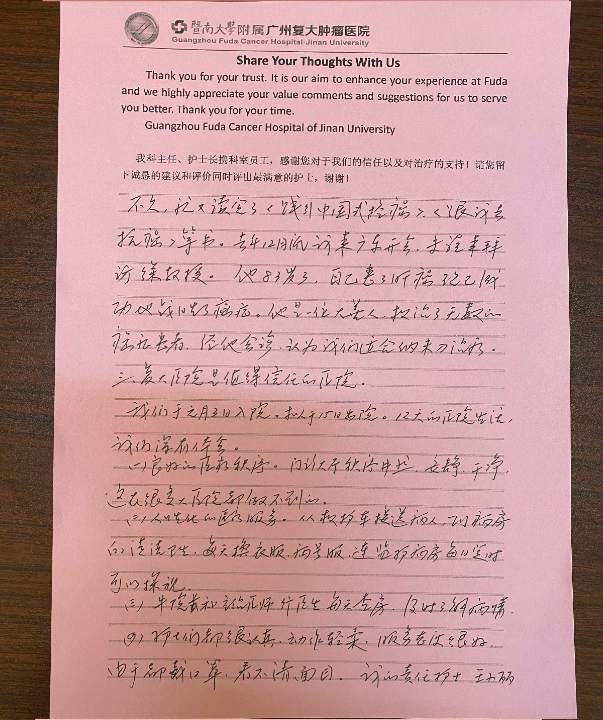 暨南大學附属广州复大肿瘤医院
Guangzhou Fuda Cancer Hospital·Jinan University
Share Your Thoughts With Us
Thank you for your trust. It is our aim to enhance your experience at Fuda
and we highly appreciate your value comments and suggestions for us to serve
you better. Thank you for your time.
Guangzhou Fuda Cancer Hospital of Jinan University
我科主任、护士长携科室员工，感谢您对于我们的信任以及对治疗的支持！请您留
下诚恳的建议和评价同时评出最满意的护士，谢谢！
不久，读完了《践行中国式控癌》、《
抗癌》等书。去年12月底 来广东开会，
访徐教授。他83岁了，自己患了肝癌 已成
功地战胜了癌症。他是一位大善人，救治了无数的
癌症患者，经他会诊，认为我们适合纳米刀治疗。
三、复大医院是值得信任的医院。
我们于元月3日入院，于15日出院。12天的医院生活，
我们深有体会。
(一) 良好的医疗秩序。门诊大厅秩序井然，安静，干净，
这在很多大医院都做不到的。
(二) 人性化的医疗服务。从救护车接送病人，到病房
的清洁卫生，每天换衣服，病号服，连监护病房每日定时
可以探视。
(三) 牛院长和主治医师 医生每天查房，及时了解病情。
(四) 护士们都很认真，动作轻柔，服务态度很好，
由于都戴口罩，看不清面目。我的责任护士 王 丽